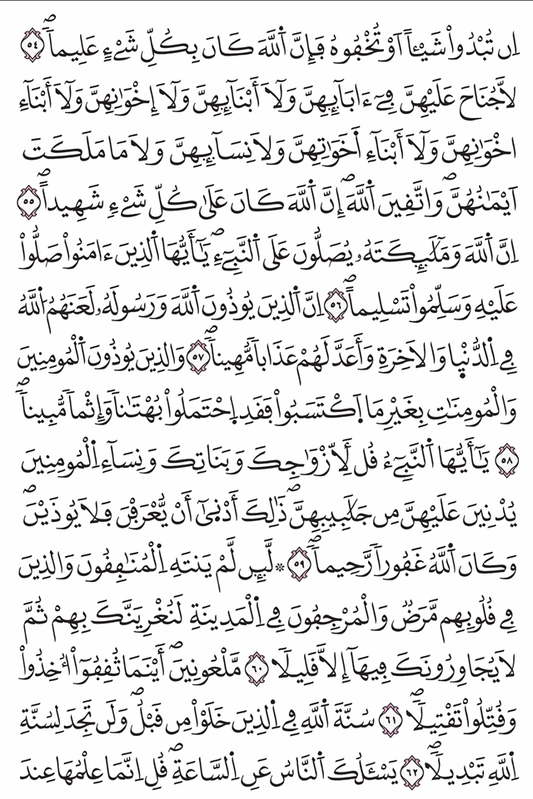 اِن تُبْدُواْ شَيْـٔاً اَوْ تُخْفُوهُ فَإِنَّ اَ۬للَّهَ كَانَ بِكُلِّ شَےْءٍ عَلِيماٗۖ ٥٤
لَّا جُنَاحَ عَلَيْهِنَّ فِےٓ ءَابَآئِهِنَّ وَلَآ أَبْنَآئِهِنَّ وَلَآ إِخْوَٰنِهِنَّ وَلَآ أَبْنَآءِ
اِخْوَٰنِهِنَّ وَلَآ أَبْنَآءِ اَ۬خَوَٰتِهِنَّ وَلَا نِسَآئِهِنَّ وَلَا مَا مَلَكَتَ
اَيْمَٰنُهُنَّۖ وَاتَّقِينَ اَ۬للَّهَۖ إِنَّ اَ۬للَّهَ كَانَ عَلَىٰ كُلِّ شَےْءٖ شَهِيداًۖ ٥٥
اِنَّ اَ۬للَّهَ وَمَلَٰٓئِكَتَهُۥ يُصَلُّونَ عَلَى اَ۬لنَّبِےٓءِۖ يَٰٓأَيُّهَا اَ۬لذِينَ ءَامَنُواْ صَلُّواْ
عَلَيْهِ وَسَلِّمُواْ تَسْلِيماًۖ ٥٦ اِنَّ اَ۬لذِينَ يُوذُونَ اَ۬للَّهَ وَرَسُولَهُۥ لَعَنَهُمُ اُ۬للَّهُ
فِے اِ۬لدُّنْي۪ا وَالَاخِرَةِ وَأَعَدَّ لَهُمْ عَذَاباٗ مُّهِيناٗۖ ٥٧ وَالذِينَ يُوذُونَ اَ۬لْمُومِنِينَ
وَالْمُومِنَٰتِ بِغَيْرِ مَا اَ۪كْتَسَبُواْ فَقَدِ اِ۪حْتَمَلُواْ بُهْتَٰناٗ وَإِثْماٗ مُّبِيناٗۖ
٥٨ يَٰٓأَيُّهَا اَ۬لنَّبِےٓءُ قُل لِّأَزْوَٰجِكَ وَبَنَاتِكَ وَنِسَآءِ اِ۬لْمُومِنِينَ
يُدْنِينَ عَلَيْهِنَّ مِن جَلَٰبِيبِهِنَّۖ ذَٰلِكَ أَدْن۪ىٰٓ أَنْ يُّعْرَفْنَ فَلَا يُوذَيْنَۖ
وَكَانَ اَ۬للَّهُ غَفُوراٗ رَّحِيماٗۖ ٥٩ ۞ لَّئِن لَّمْ يَنتَهِ اِ۬لْمُنَٰفِقُونَ وَالذِينَ
فِے قُلُوبِهِم مَّرَضٞ وَالْمُرْجِفُونَ فِے اِ۬لْمَدِينَةِ لَنُغْرِيَنَّكَ بِهِمْ ثُمَّ
لَا يُجَاوِرُونَكَ فِيهَآ إِلَّا قَلِيلاٗ ٦٠ مَّلْعُونِينَۖ أَيْنَمَا ثُقِفُوٓاْ أُخِذُواْ
وَقُتِّلُواْ تَقْتِيلاٗۖ ٦١ سُنَّةَ اَ۬للَّهِ فِے اِ۬لذِينَ خَلَوْاْ مِن قَبْلُۖ وَلَن تَجِدَ لِسُنَّةِ
اِ۬للَّهِ تَبْدِيلاٗۖ ٦٢ يَسْـَٔلُكَ اَ۬لنَّاسُ عَنِ اِ۬لسَّاعَةِۖ قُلِ اِنَّمَا عِلْمُهَا عِندَ